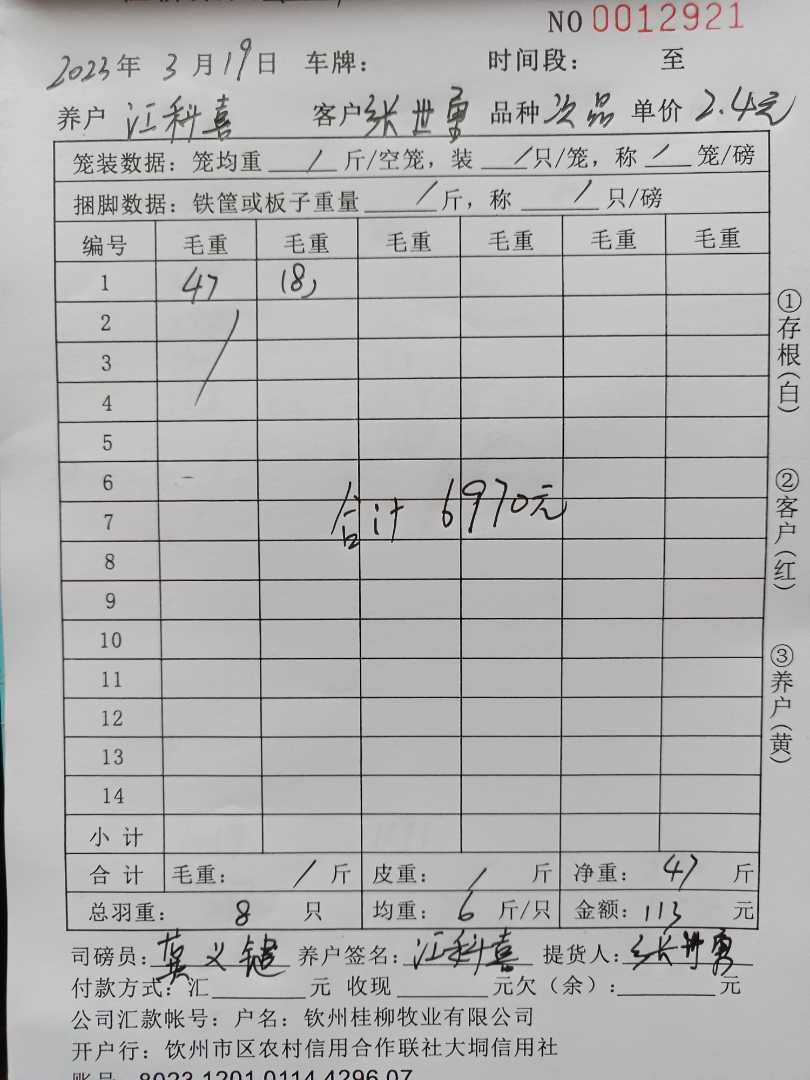 NO 0012921
2023年 3月19日 车牌: 时间段: 至
养户 江科喜 客户张世勇 品种次品 单价2.4元
笼装数据:笼均重 / 斤/空笼,装 /只/笼,称/ 笼/磅
捆脚数据:铁筐或板子重量 / 斤,称 / 只/磅
编号 毛重 毛重 毛重 毛重 毛重 毛重
1 47 (8)
2
3
4
5
6
7
合计 6970元
8
9
10
11
12
13
14
小计
合计 毛重: / 斤 皮重: / 斤 净重: 47 斤
总羽重: 8 只 均重: 6 斤/只 金额: 113 元
司磅员: 莫义键 养户签名: 江科喜 提货人: 张世勇
付款方式:汇 元 收现 元欠(余): 元
公司汇款帐号:户名:钦州桂柳牧业有限公司
开户行:钦州市区农村信用合作联社大垌信用社
账号 8023 1201 0114 4296 07
①存根(白)
②客户(红)
③养户(黄)